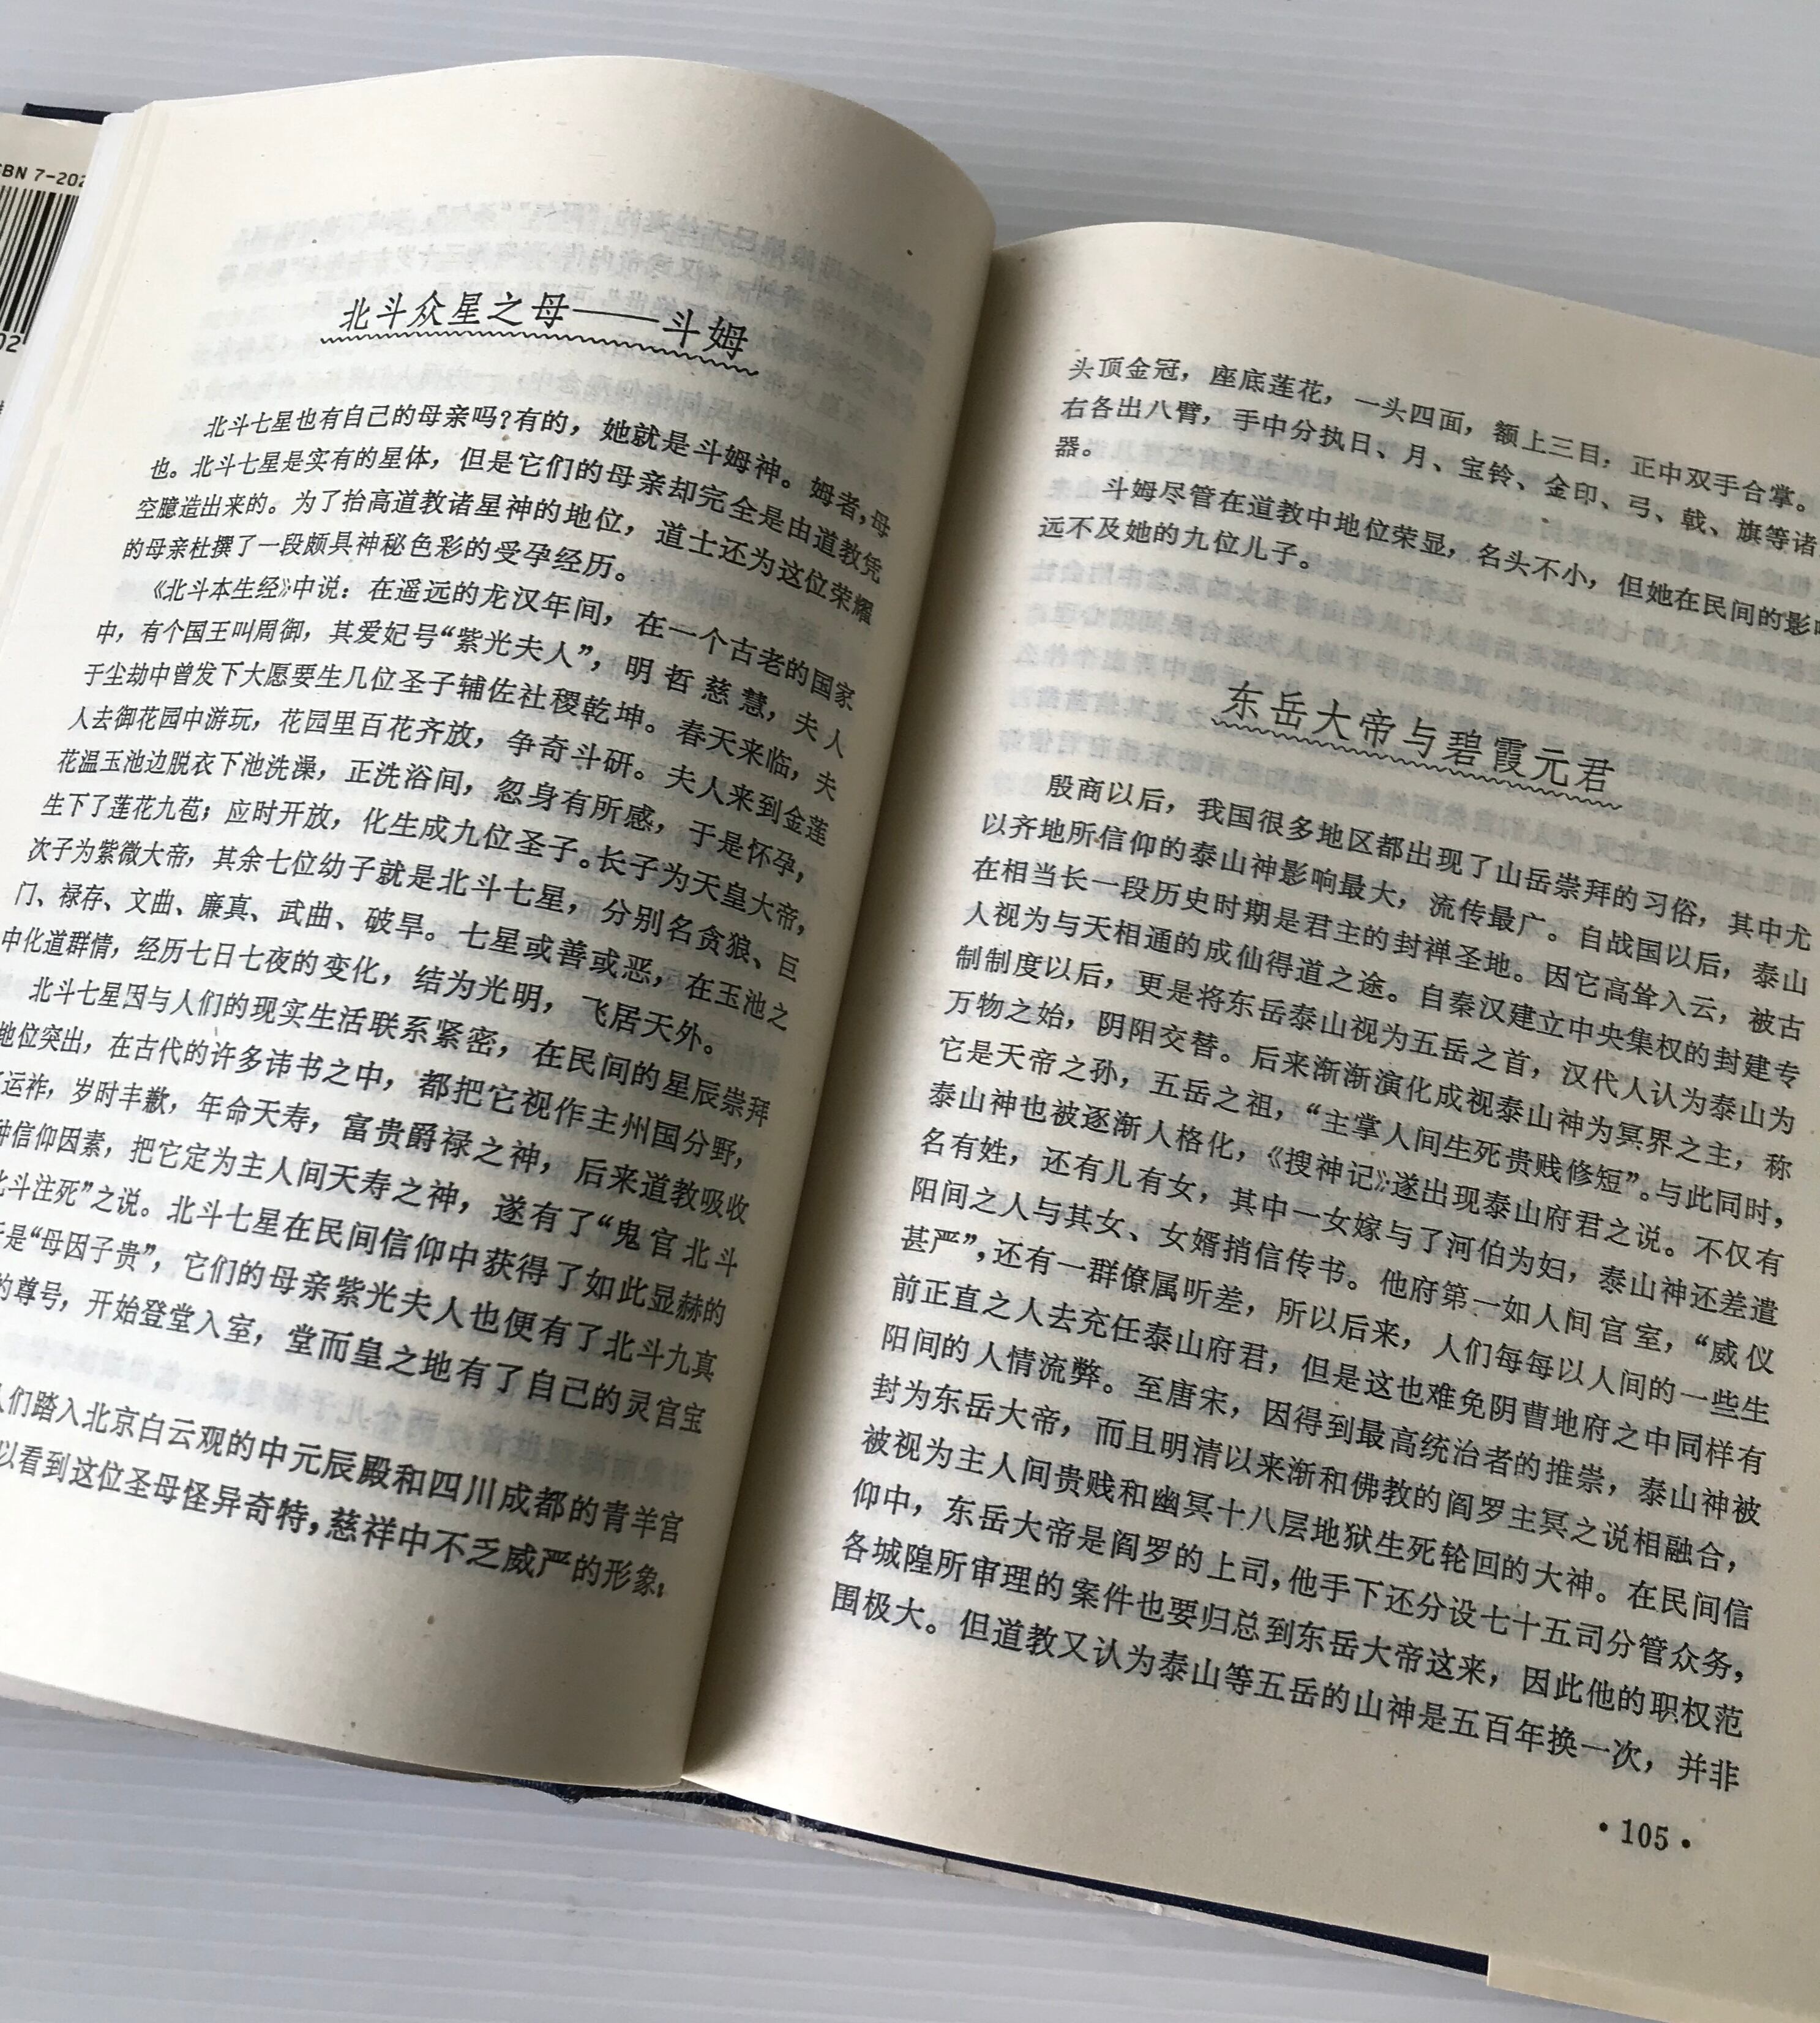 BN 7-202
02
北斗众星之母——斗姆
北斗七星也有自己的母亲吗?有的，她就是斗姆神。姆者，母
也。北斗七星是实有的星体，但是它们的母亲却完全是由道教凭
空臆造出来的。为了抬高道教诸星神的地位，道士还为这位荣耀
的母亲杜撰了一段颇具神秘色彩的受孕经历。
《北斗本生经》中说：在遥远的龙汉年间，在一个古老的国家
中，有个国王叫周御，其爱妃号“紫光夫人”，明哲慈慧，夫人
于尘劫中曾发下大愿要生几位圣子辅佐社稷乾坤。春天来临，夫
人去御花园中游玩，花园里百花齐放，争奇斗研。夫人来到金莲
花温玉池边脱衣下池洗澡，正洗浴间，忽身有所感，于是怀孕，
生下了莲花九苞；应时开放，化生成九位圣子。长子为天皇大帝，
次子为紫微大帝，其余七位幼子就是北斗七星，分别名贪狼、巨
门、禄存、文曲、廉真、武曲、破旱。七星或善或恶，在玉池之
中化道群情，经历七日七夜的变化，结为光明，飞居天外。
北斗七星因与人们的现实生活联系紧密，在民间的星辰崇拜
地位突出，在古代的许多讳书之中，都把它视作主州国分野，
运祚，岁时丰歉，年命天寿，富贵爵禄之神，后来道教吸收
种信仰因素，把它定为主人间天寿之神，遂有了“鬼官北斗
北斗注死”之说。北斗七星在民间信仰中获得了如此显赫的
是“母因子贵”，它们的母亲紫光夫人也便有了北斗九真
的尊号，开始登堂入室，堂而皇之地有了自己的灵官宝
人们踏入北京白云观的中元辰殿和四川成都的青羊宫
以看到这位圣母怪异奇特，慈祥中不乏威严的形象：
头顶金冠，座底莲花，一头四面，额上三目；正中双手合掌。
右各出八臂，手中分执日、月、宝铃、金印、弓、戟、旗等诸
器。
斗姆尽管在道教中地位荣显，名头不小，但她在民间的影
远不及她的九位儿子。
东岳大帝与碧霞元君
殷商以后，我国很多地区都出现了山岳崇拜的习俗，其中尤
以齐地所信仰的泰山神影响最大，流传最广。自战国以后，泰山
在相当长一段历史时期是君主的封禅圣地。因它高耸入云，被古
人视为与天相通的成仙得道之途。自秦汉建立中央集权的封建专
制制度以后，更是将东岳泰山视为五岳之首，汉代人认为泰山为
万物之始，阴阳交替。后来渐渐演化成视泰山神为冥界之主，称
它是天帝之孙，五岳之祖，“主掌人间生死贵贱修短”。与此同时，
泰山神也被逐渐人格化，《搜神记》遂出现泰山府君之说。不仅有
名有姓，还有儿有女，其中一女嫁与了河伯为妇，泰山神还差遣
阳间之人与其女、女婿捎信传书。他府第一如人间宫室，“威仪
甚严”，还有一群僚属听差，所以后来，人们每每以人间的一些生
前正直之人去充任泰山府君，但是这也难免阴曹地府之中同样有
阳间的人情流弊。至唐宋，因得到最高统治者的推崇，泰山神被
封为东岳大帝，而且明清以来渐和佛教的阎罗主冥之说相融合，
被视为主人间贵贱和幽冥十八层地狱生死轮回的大神。在民间信
仰中，东岳大帝是阎罗的上司，他手下还分设七十五司分管众务，
各城隍所审理的案件也要归总到东岳大帝这来，因此他的职权范
围极大。但道教又认为泰山等五岳的山神是五百年换一次，并非
•105•